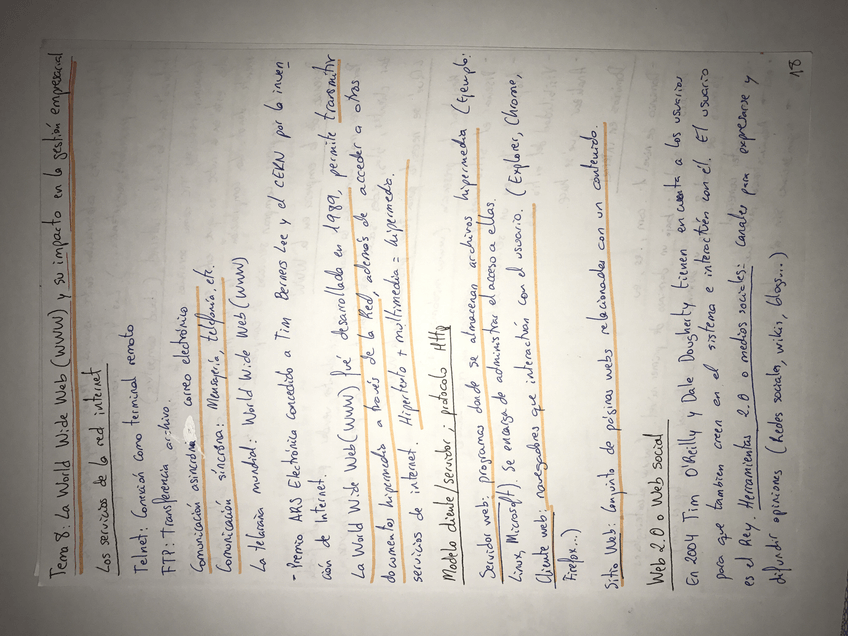 Tema 8: La World Wide Web (WWW) y su impacto en la gestión empresarial
Los servicios de la red internet
Telnet: Conexión como terminal remoto
FTP: Transferencia archivo.
Comunicación asíncrona correo electrónico
Comunicación síncrona: Mensajería, telefonía, etc.
La telaraña mundial: World Wide Web (WWW)
- Premio ARS Electrónica concedido a Tim Berners Lee y el CERN por la inven-
ción de Internet.
La World Wide Web (WWW) fué desarrollada en 1989, permite transmitir
documentos hipermedia a través de la Red, además de acceder a otros
servicios de internet. Hipertexto + multimedia = hipermedia.
Modelo cliente/servidor; protocolo Http
Servidor web: programas donde se almacenan archivos hipermedia (Ejemplo:
Linux, Microsoft). Se encarga de administrar el acceso a ellas.
Cliente web: navegadores que interactúan con el usuario. (Explorer, Chrome,
Firefox...)
Sitio Web: Conjunto de páginas webs relacionadas con un contenido.
Web 2.0 o Web social
En 2004 Tim O'Reilly y Dale Dougherty tienen en cuenta a los usuarios
para que tambien creen en el sistema e interactúen con él. El usuario
es el Rey. Herramientas 2.0 o medios sociales: canales para expresarse y
difundir opiniones (Redes sociales, wikis, blogs...)
18